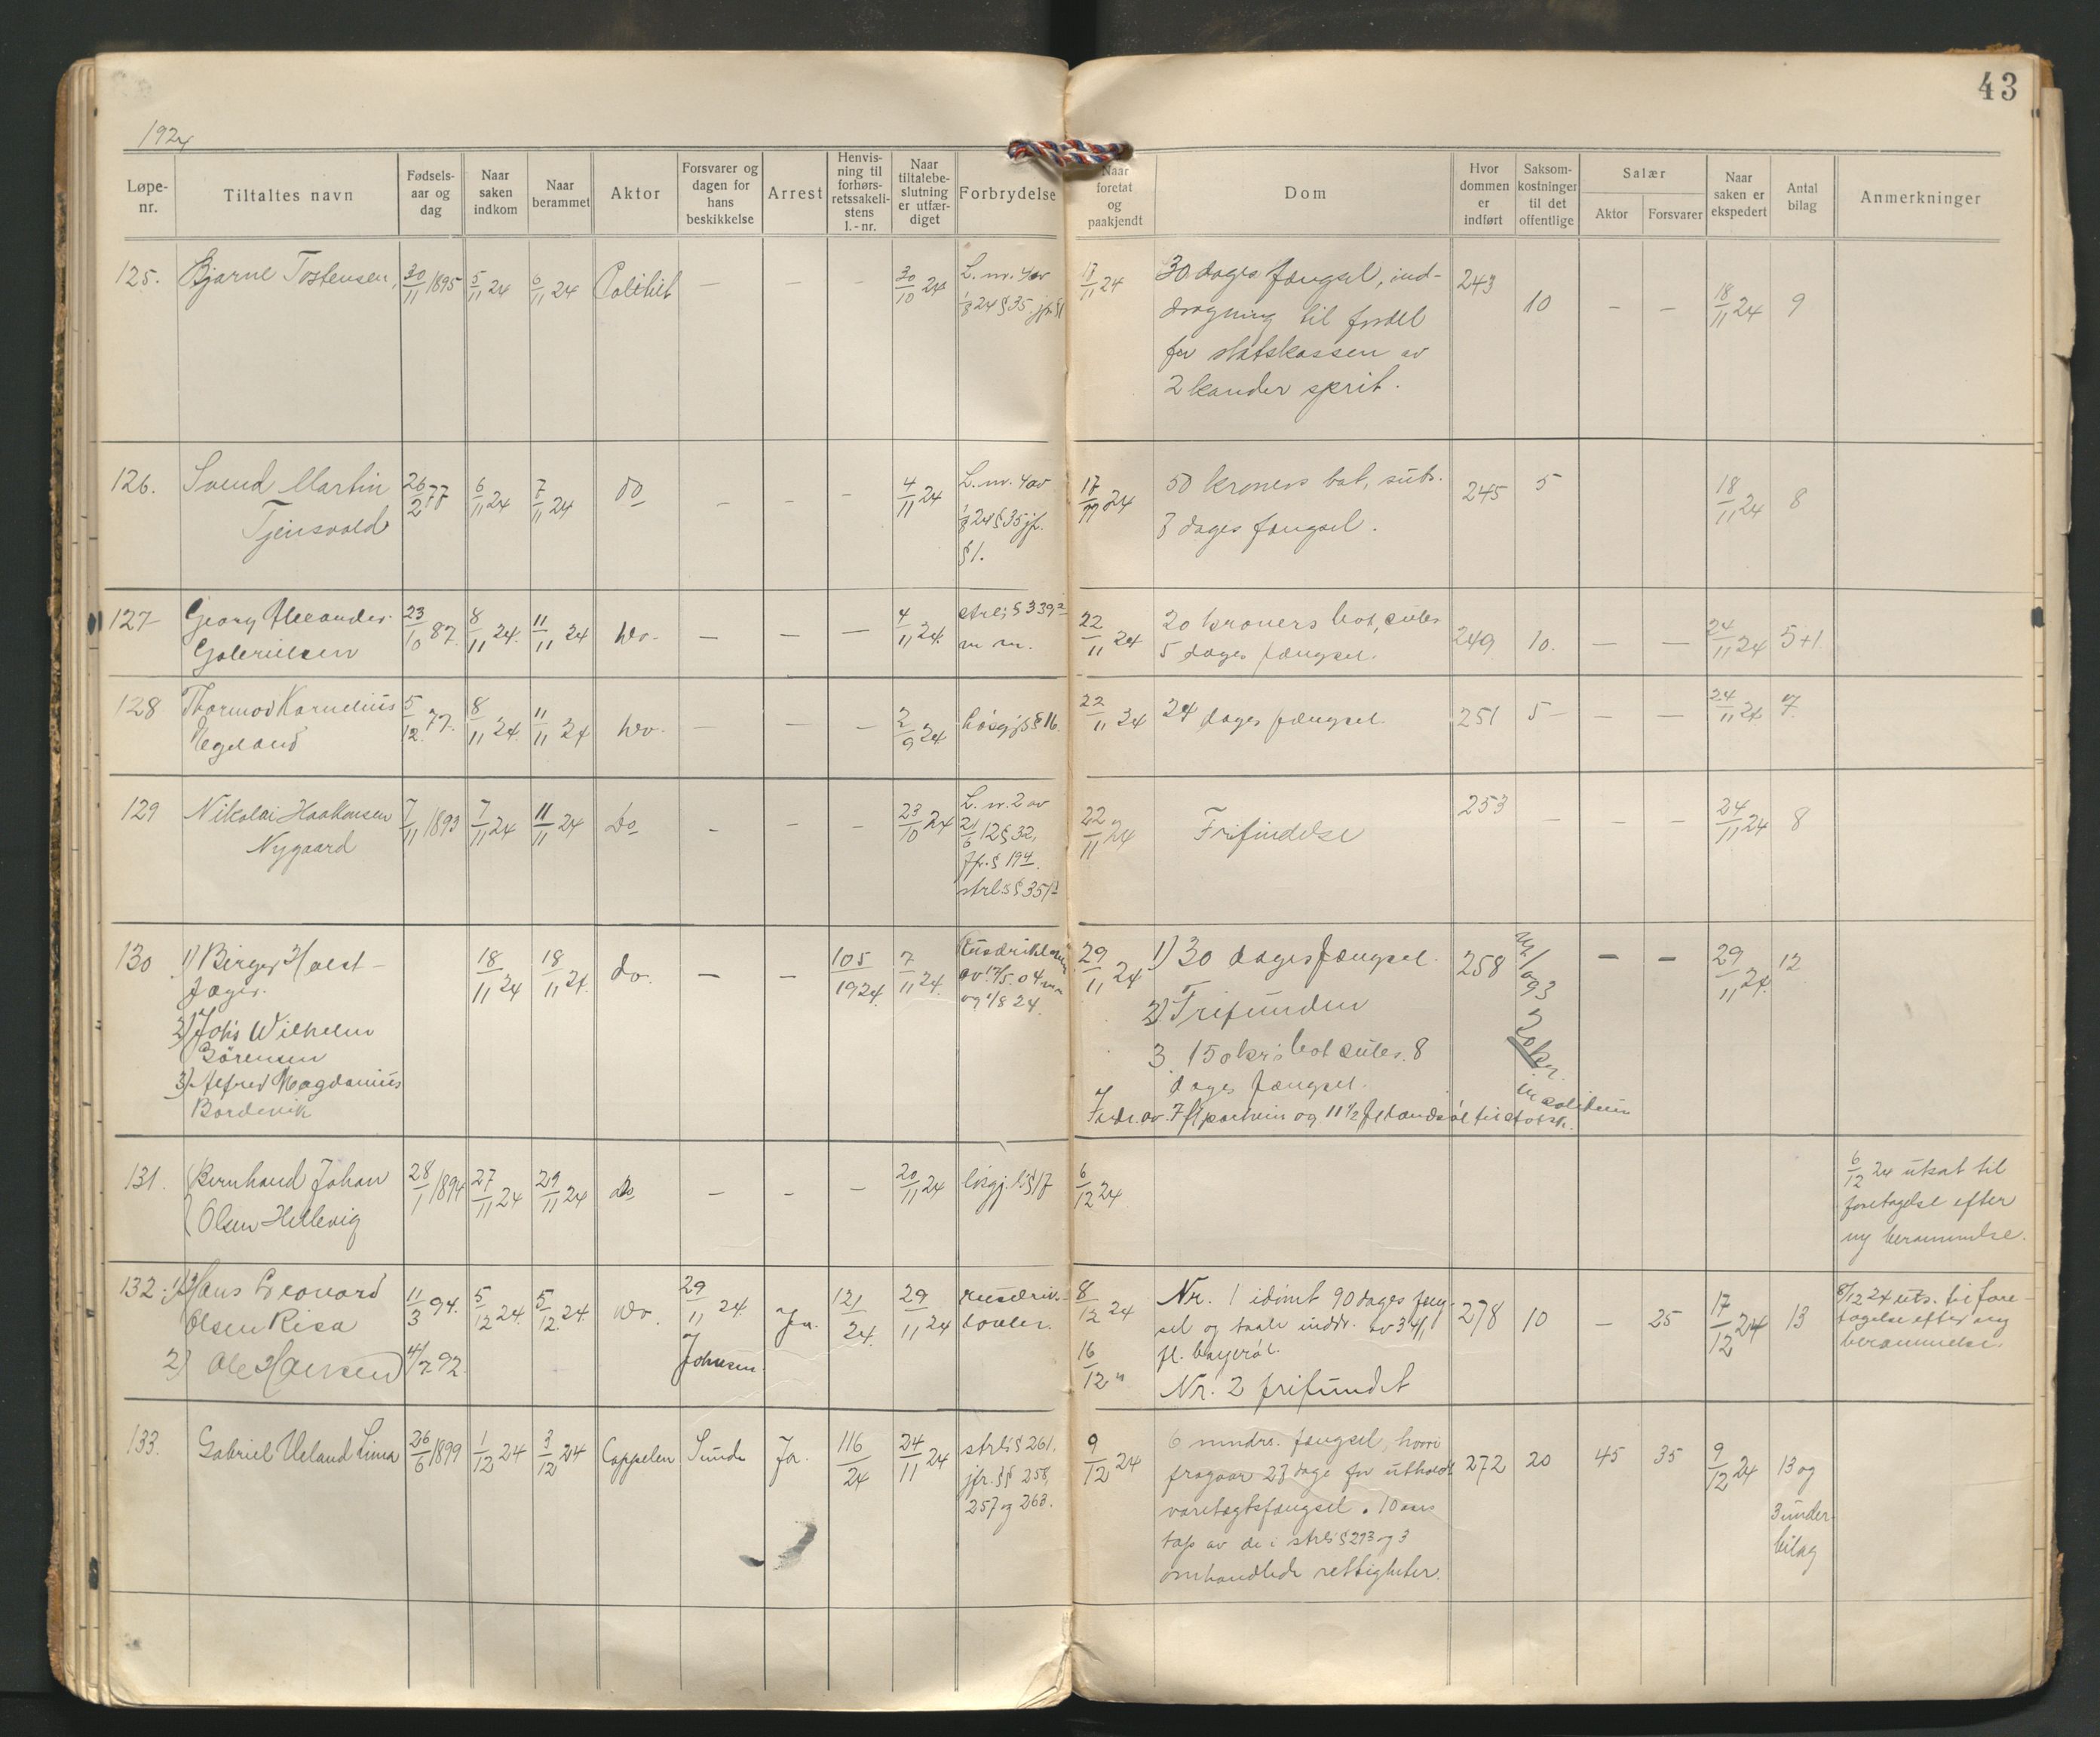 43
1924
Løpe-nr.
Tiltaltes navn
Fødsels-aar og dag
Naar saken indkom
Naar berammet
Aktor
Forsvarer og dagen for hans beskikkelse
Arrest
Henvis-ning til forhørs-retssakeli-stens l.-nr.
Naar tiltalebe-slutning er utfær-diget
Forbrydelse
Naar foretat og paakjendt
Dom
Hvor dommen er indført
Saksom-kostninger til det offentlige
Salær
Aktor
Forsvarer
Naar saken er ekspedert
Antal bilag
Anmerkninger
125. Bjarne Tostensen, 30/11 1895 5/11 24 6/11 24 Politiet — — — 30/10 24 L. nr. 4 av
1/8 24 § 35 jfr. §1
17/11 24 30 dages fængsel, ind-
dragning til fordel
for statskassen av
2 kander sprit.
243 10 — — 18/11 24 9
126. Svend Martin
Tjensvold
26/2 77 6/11 24 7/11 24 do — — — 4/11 24 L. nr. 4 av
1/8 24 § 35 jfr.
§ 1.
17/11 24 50 kroners bot, subs.
3 dages fængsel.
245 5 18/11 24 8
127 Georg Alexander
Gabrielsen
23/10 87. 8/11 24. 11/11 24 do. — — — 4/11 24. strls § 339,2
m m.
22/11 24 20 kroners bot, subs
5 dages fængsel.
249 10. — — 24/11 24 5+1.
128 Thormod Kornelius
Egeland
5/12. 77. 8/11 24. 11/11 24 do. — — — 2/9 24 løsgjs § 16.
22/11 24 24 dages fængsel.
251 5 — — — 24/11 24 7.
129 Nikolai Haakonsen
Nygaard
7/11 1893 7/11 24 11/11 24 Do — — — 23/10 24 L. nr. 2 av
21/6 12 § 32,
jfr. § 19 4.
strls § 351 1
22/11 24 Frifindelse
253 — — — 24/11 24 8
130 1) Birger Holst-
Jæger.
2) Johs Wilhelm
Sörensen
3) Alfred Magdanius
Bordevik
18/11 24 18/11 24. do. — — 105/1924. 7/11 24.
av 17/5. 04 m m
og 1/8 24.
29/11 24 1) 30 dages fængsel.
2) Frifunden
3. 150 kr's bot subs. 8
dages fængsel.
Indr. av 7 fl portvin og 11 1/2 fl landsøl til statsk.
258
nr 1 og 3
20 kr.
in solidum
— — 29/11 24. 12
131. Bernhard Johan
Olsen Hellevig
28/1 1894 27/11 24 29/11 24 do — — — 20/11 24 løsgj. l. § 17
6/12 24
6/12 24 utsat til
foretagelse efter
ny berammelse.
132. 1) Hans Leonard
Olsen Risa
2) Ole Hansen
11/3 94.
4/7 92.
5/12 24. 5/12 24. do. 29/11 24
Johnsen.
Ja. 121/24. 29/11 24 rusdriks-
loven.
8/12 24
16/12 "
Nr. 1 idömt 90 dages fæng-
sel og taale inddr. av 34 1/1
fl. bayerøl.
Nr. 2 frifundet
278 10 — 25 17/12 24 13
8/12 24 uts. til fore-
tagelse efter ny
berammelse.
133. Gabriel Ueland Lima 26/6 1899 1/12 24 3/12 24 Cappelen Sunde Ja. 116/24 24/11 24 strls § 261,
jfr. §§ 258,
257 og 263.
9/12 24 6 mndrs. fængsel, hvori
fragaar 23 dage for utholdt
varetægtsfængsel. 10 aars
tap av de i strls § 29 3 og 3
omhandlede rettigheter.
272 20 45 35 9/12 24 13 og
3 under-
bilag